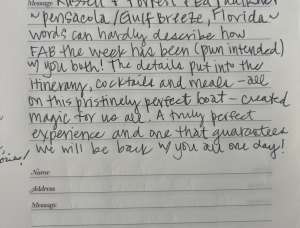 Message
~ Pensacola / Gulf Breeze, Florida ~
words can hardly describe how
FAB the week has been (pun intended)
w/ you both! The details put into the
itinerary, cocktails and meals – all
on this pristinely perfect boat – created
magic for us all. A truly perfect
experience and one that guarantees
we will be back w/ you all one day!
Name
Address
Message